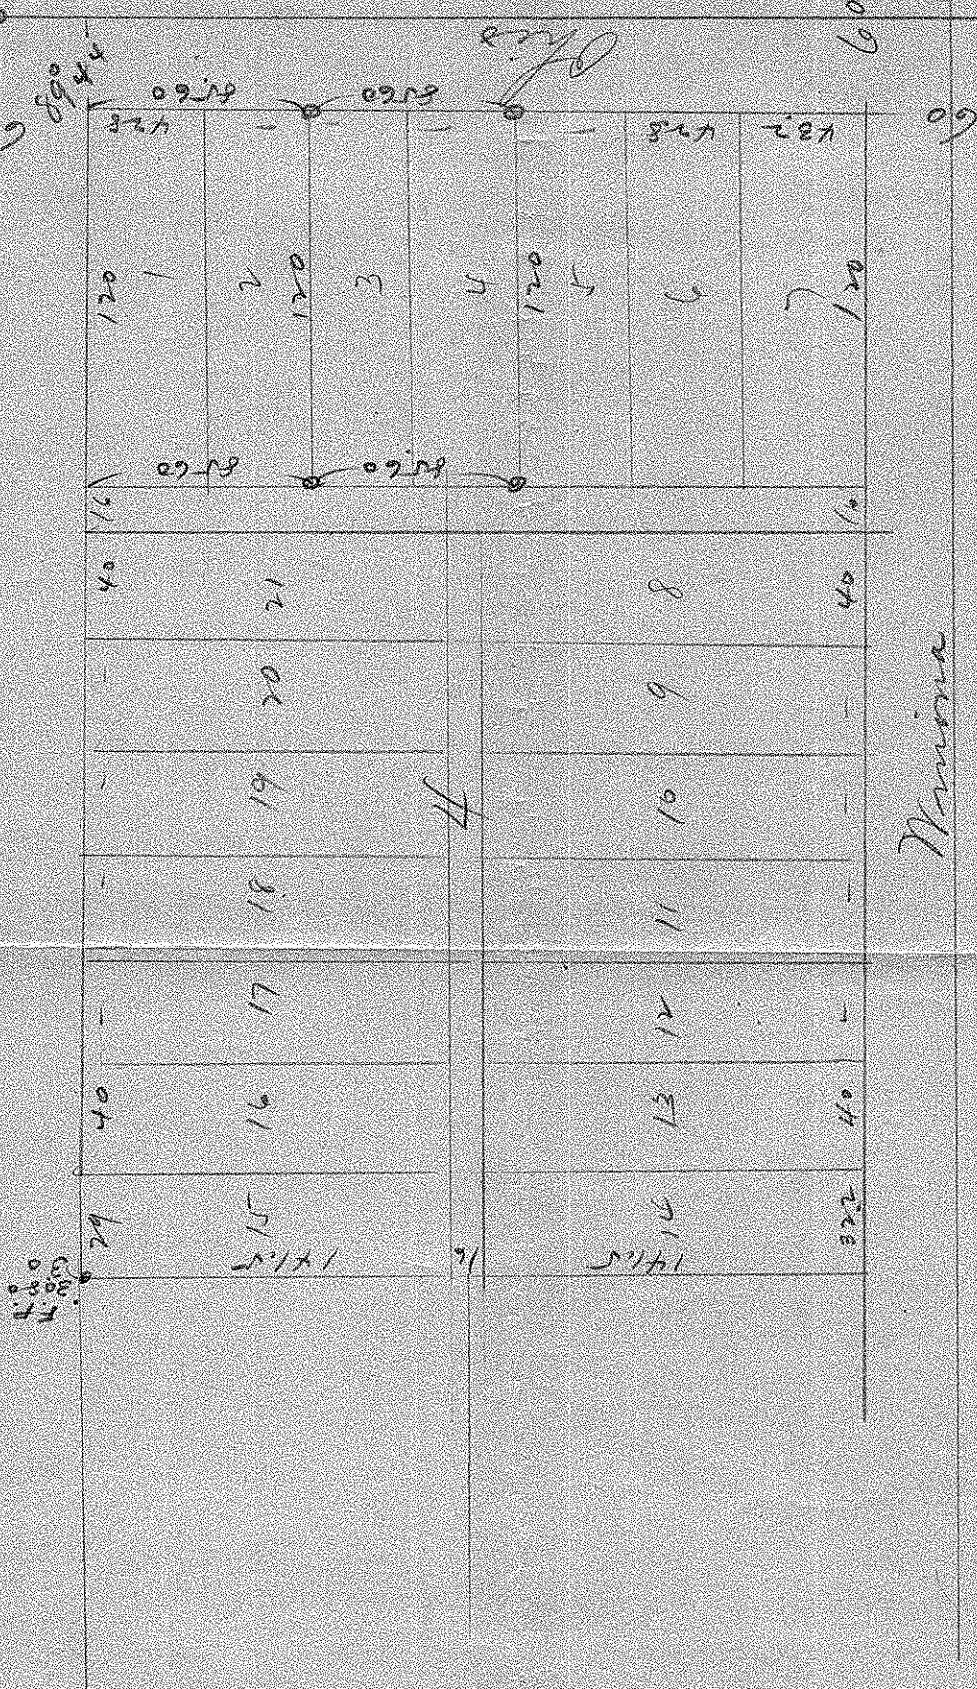 Ohio
60
60
89° 44'
85.60
85.60
42.8
-
-
-
-
42.8
43.2
120
1
2
120
3
4
120
5
6
7
120
85.60
85.60
16
16
40
21
8
40
-
20
9
-
-
19
10
-
-
18
11
-
-
17
12
-
40
16
13
40
29
15
14
22.3
141.5
16
141.5
Winona